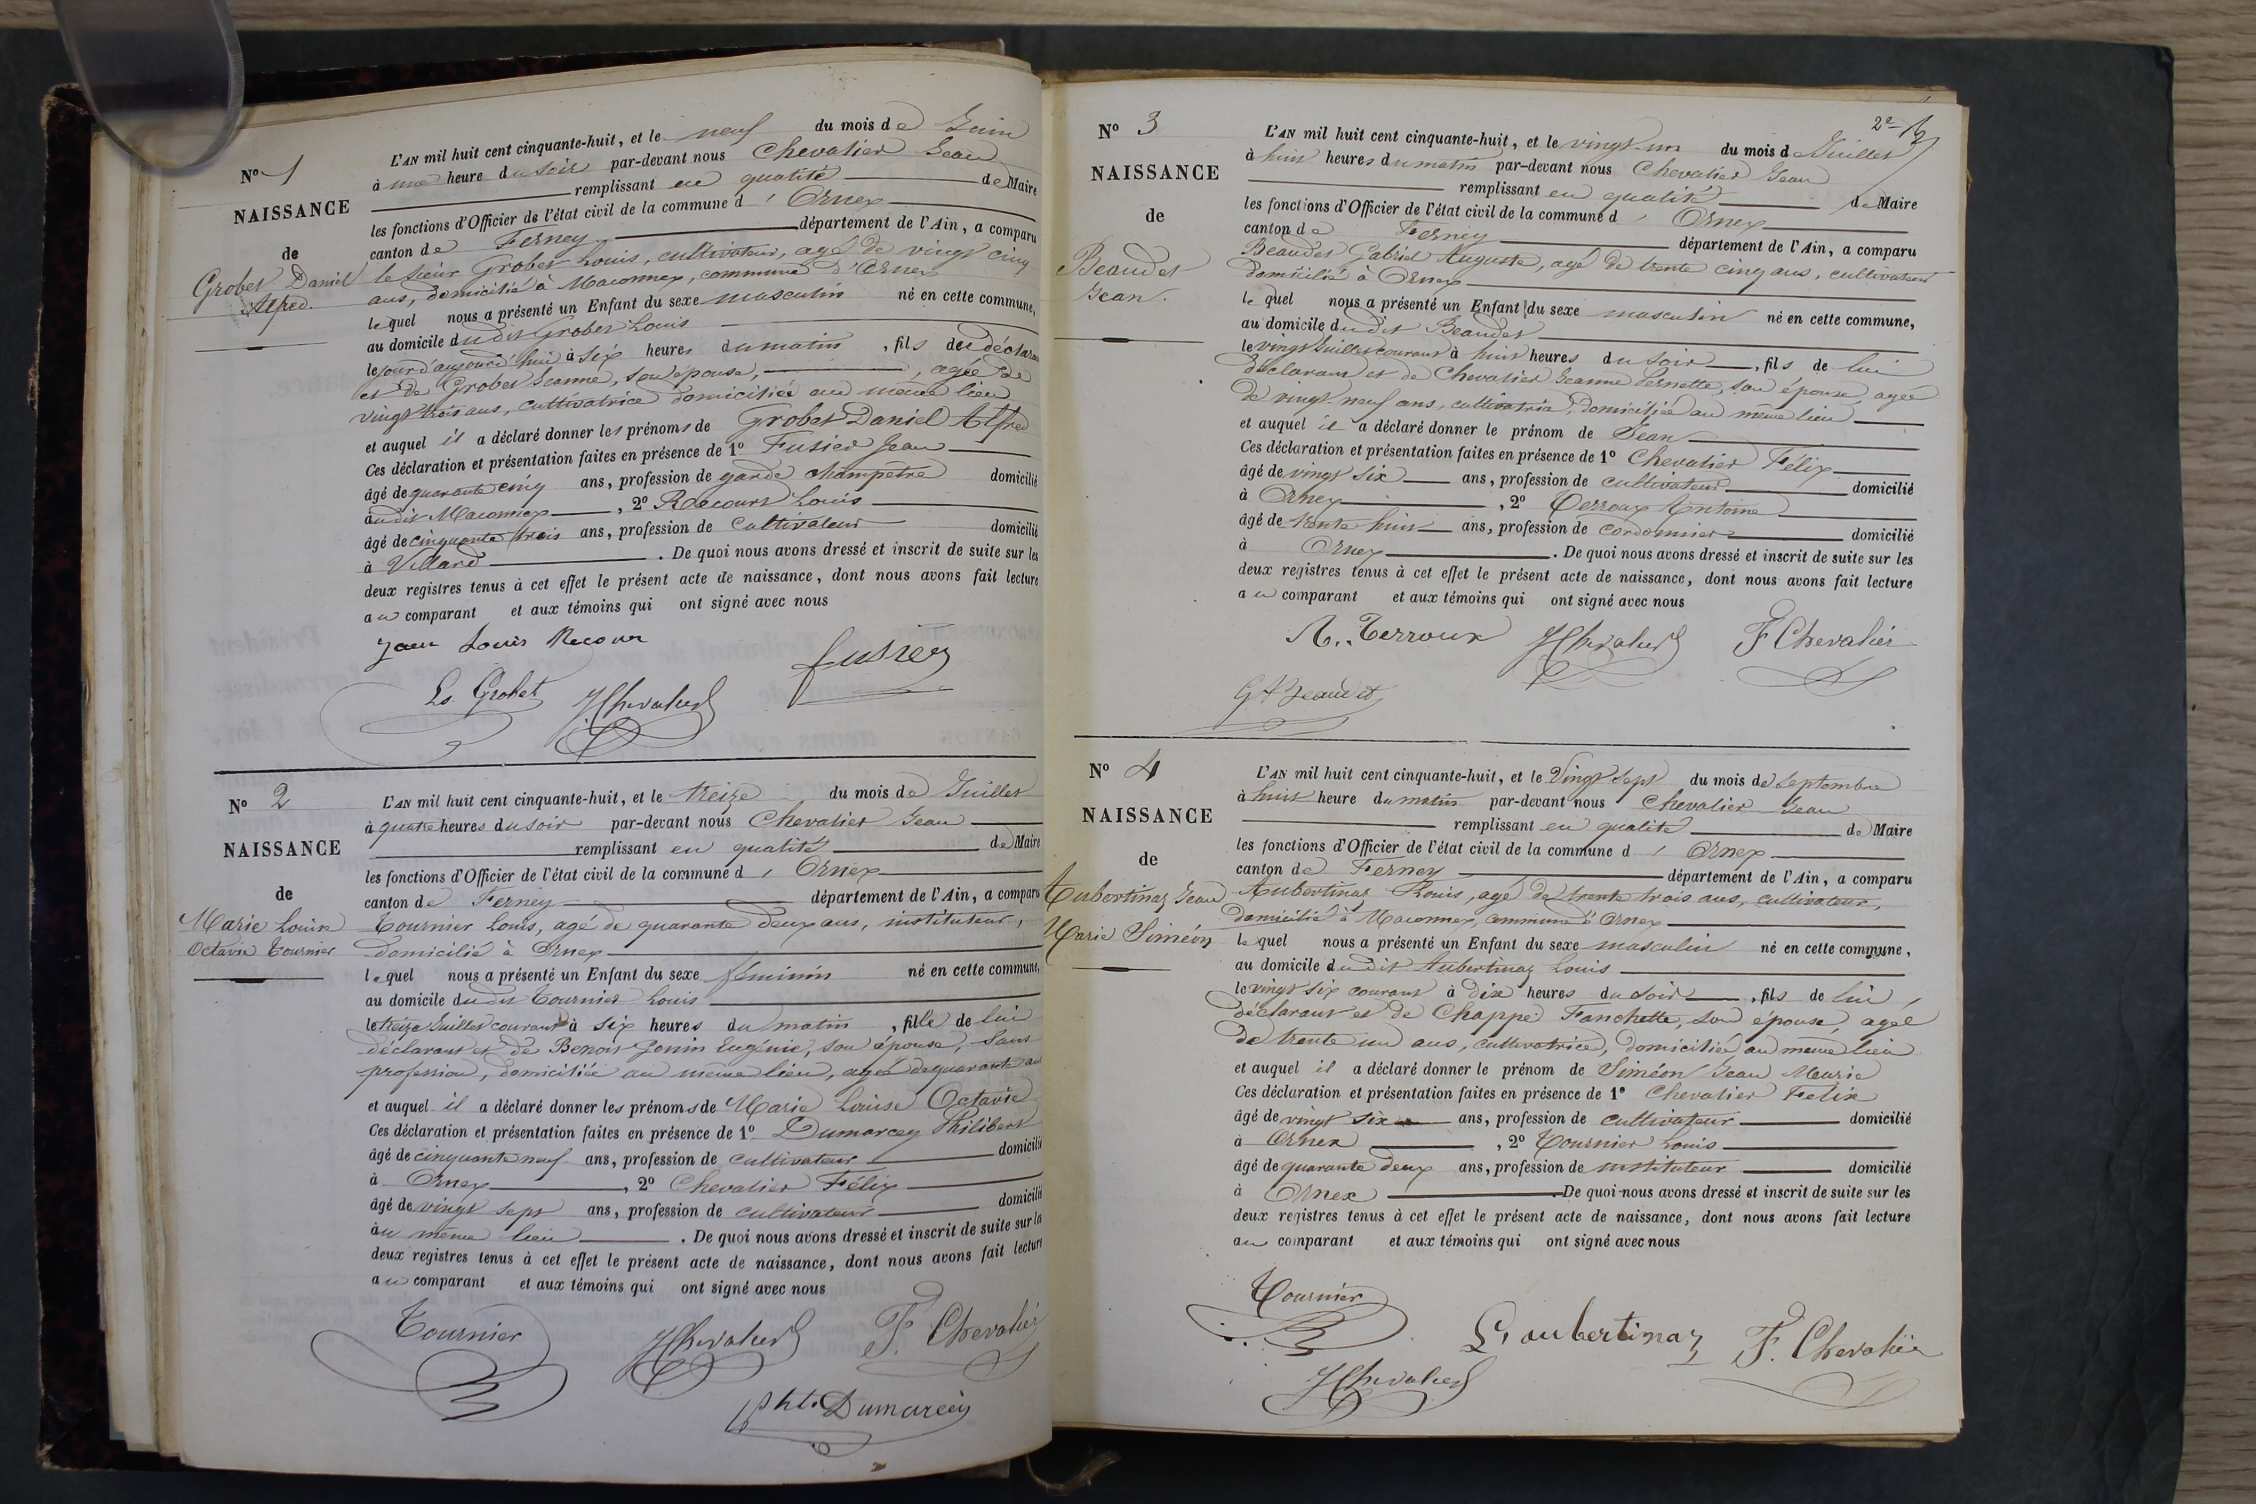 Nº 1
NAISSANCE
de
Grobet Daniel
Alfred.
L'AN mil huit cent cinquante-huit, et le neuf du mois de Juin
à une heure du soir par-devant nous Chevalier Jean
remplissant en qualité de Maire
les fonctions d'Officier de l'état civil de la commune d' Ornex
canton de Ferney département de l'Ain, a comparu
le sieur Grobet Louis, cultivateur, agé de vingt cinq
ans, domicilié à Maconnex, commune d'Ornex
lequel nous a présenté un Enfant du sexe masculin né en cette commune,
au domicile dudit Grobet Louis
le jour d'aujourd'hui à six heures du matin, fils du déclarant
et de Grobet Jeanne, son épouse, agée de
vingt trois ans, cultivatrice domiciliée au même lieu
et auquel il a déclaré donner les prénoms de Grobet Daniel Alfred
Ces déclaration et présentation faites en présence de 1º Fusier Jean
âgé de quarante cinq ans, profession de garde champetre domicilié
audit Maconnex, 2º Recourt Louis
âgé de cinquante trois ans, profession de Cultivateur domicilié
à Villard. De quoi nous avons dressé et inscrit de suite sur les
deux registres tenus à cet effet le présent acte de naissance, dont nous avons fait lecture
au comparant et aux témoins qui ont signé avec nous
Jean Louis Recour
fusier
Ls Grobet JChevalier
Nº 2
NAISSANCE
de
Marie Louise
Octavie Tournier
L'AN mil huit cent cinquante-huit, et le treize du mois de Juillet
à quatre heures du soir par-devant nous Chevalier Jean
remplissant en qualité de Maire
les fonctions d'Officier de l'état civil de la commune d' Ornex
canton de Ferney département de l'Ain, a comparu
Tournier Louis, agé de quarante deux ans, instituteur,
domicilié à Ornex
lequel nous a présenté un Enfant du sexe féminin né en cette commune,
au domicile dudit Tournier Louis
le treize Juillet courant à six heures du matin, fille de lui
déclarant et de Benoit Jonin Eugénie, son épouse, Sans
profession, domiciliée au même lieu, agée de quarante ans
et auquel il a déclaré donner les prénoms de Marie Louise Octavie
Ces déclaration et présentation faites en présence de 1º Dumarcey Philibert
âgé de cinquante neuf ans, profession de cultivateur domicilié
à Ornex, 2º Chevalier Félix
âgé de vingt sept ans, profession de cultivateur domicilié
au même lieu. De quoi nous avons dressé et inscrit de suite sur les
deux registres tenus à cet effet le présent acte de naissance, dont nous avons fait lecture
au comparant et aux témoins qui ont signé avec nous
Tournier JChevalier F. Chevalier
Pht. Dumarcey
Nº 3
NAISSANCE
de
Beaudet
Jean.
L'AN mil huit cent cinquante-huit, et le vingt-un du mois de Juillet
à huit heures du matin par-devant nous Chevalier Jean
remplissant en qualité de Maire
les fonctions d'Officier de l'état civil de la commune d' Ornex
canton de Ferney département de l'Ain, a comparu
Beaudet Gabriel Auguste, agé de trente cinq ans, cultivateur
domicilié à Ornex
lequel nous a présenté un Enfant du sexe masculin né en cette commune,
au domicile dudit Beaudet
le vingt Juillet courant à huit heures du soir, fils de lui
déclarant et de Chevalier Jeanne Pernette, son épouse, agée
de vingt-neuf ans, cultivatrice, domiciliée au même lieu
et auquel il a déclaré donner le prénom de Jean
Ces déclaration et présentation faites en présence de 1º Chevalier Félix
âgé de vingt six ans, profession de cultivateur domicilié
à Ornex, 2º Terroux Antoine
âgé de trente huit ans, profession de cordonnier domicilié
à Ornex. De quoi nous avons dressé et inscrit de suite sur les
deux registres tenus à cet effet le présent acte de naissance, dont nous avons fait lecture
au comparant et aux témoins qui ont signé avec nous
A. Terroux JChevalier F Chevalier
GA Beaudet
Nº 4
NAISSANCE
de
Aubertinaz Jean
Marie Siméon
L'AN mil huit cent cinquante-huit, et le Vingt sept du mois de septembre
à huit heure du matin par-devant nous Chevalier Jean
remplissant en qualité de Maire
les fonctions d'Officier de l'état civil de la commune d' Ornex
canton de Ferney département de l'Ain, a comparu
Aubertinaz Louis, agé de trente trois ans, cultivateur,
domicilié à Maconnex, commune d'Ornex
lequel nous a présenté un Enfant du sexe masculin né en cette commune,
au domicile dudit Aubertinaz Louis
le vingt six courant à dix heures du soir, fils de lui,
déclarant et de Chappé Fanchette, son épouse, agée
de trente un ans, cultivatrice, domiciliée au même lieu
et auquel il a déclaré donner le prénom de Siméon Jean Marie
Ces déclaration et présentation faites en présence de 1º Chevalier Felix
âgé de vingt six ans, profession de cultivateur domicilié
à Ornex, 2º Tournier Louis
âgé de quarante deux ans, profession de instituteur domicilié
à Ornex De quoi nous avons dressé et inscrit de suite sur les
deux registres tenus à cet effet le présent acte de naissance, dont nous avons fait lecture
au comparant et aux témoins qui ont signé avec nous
Tournier
L. aubertinaz F. Chevalier
JChevalier